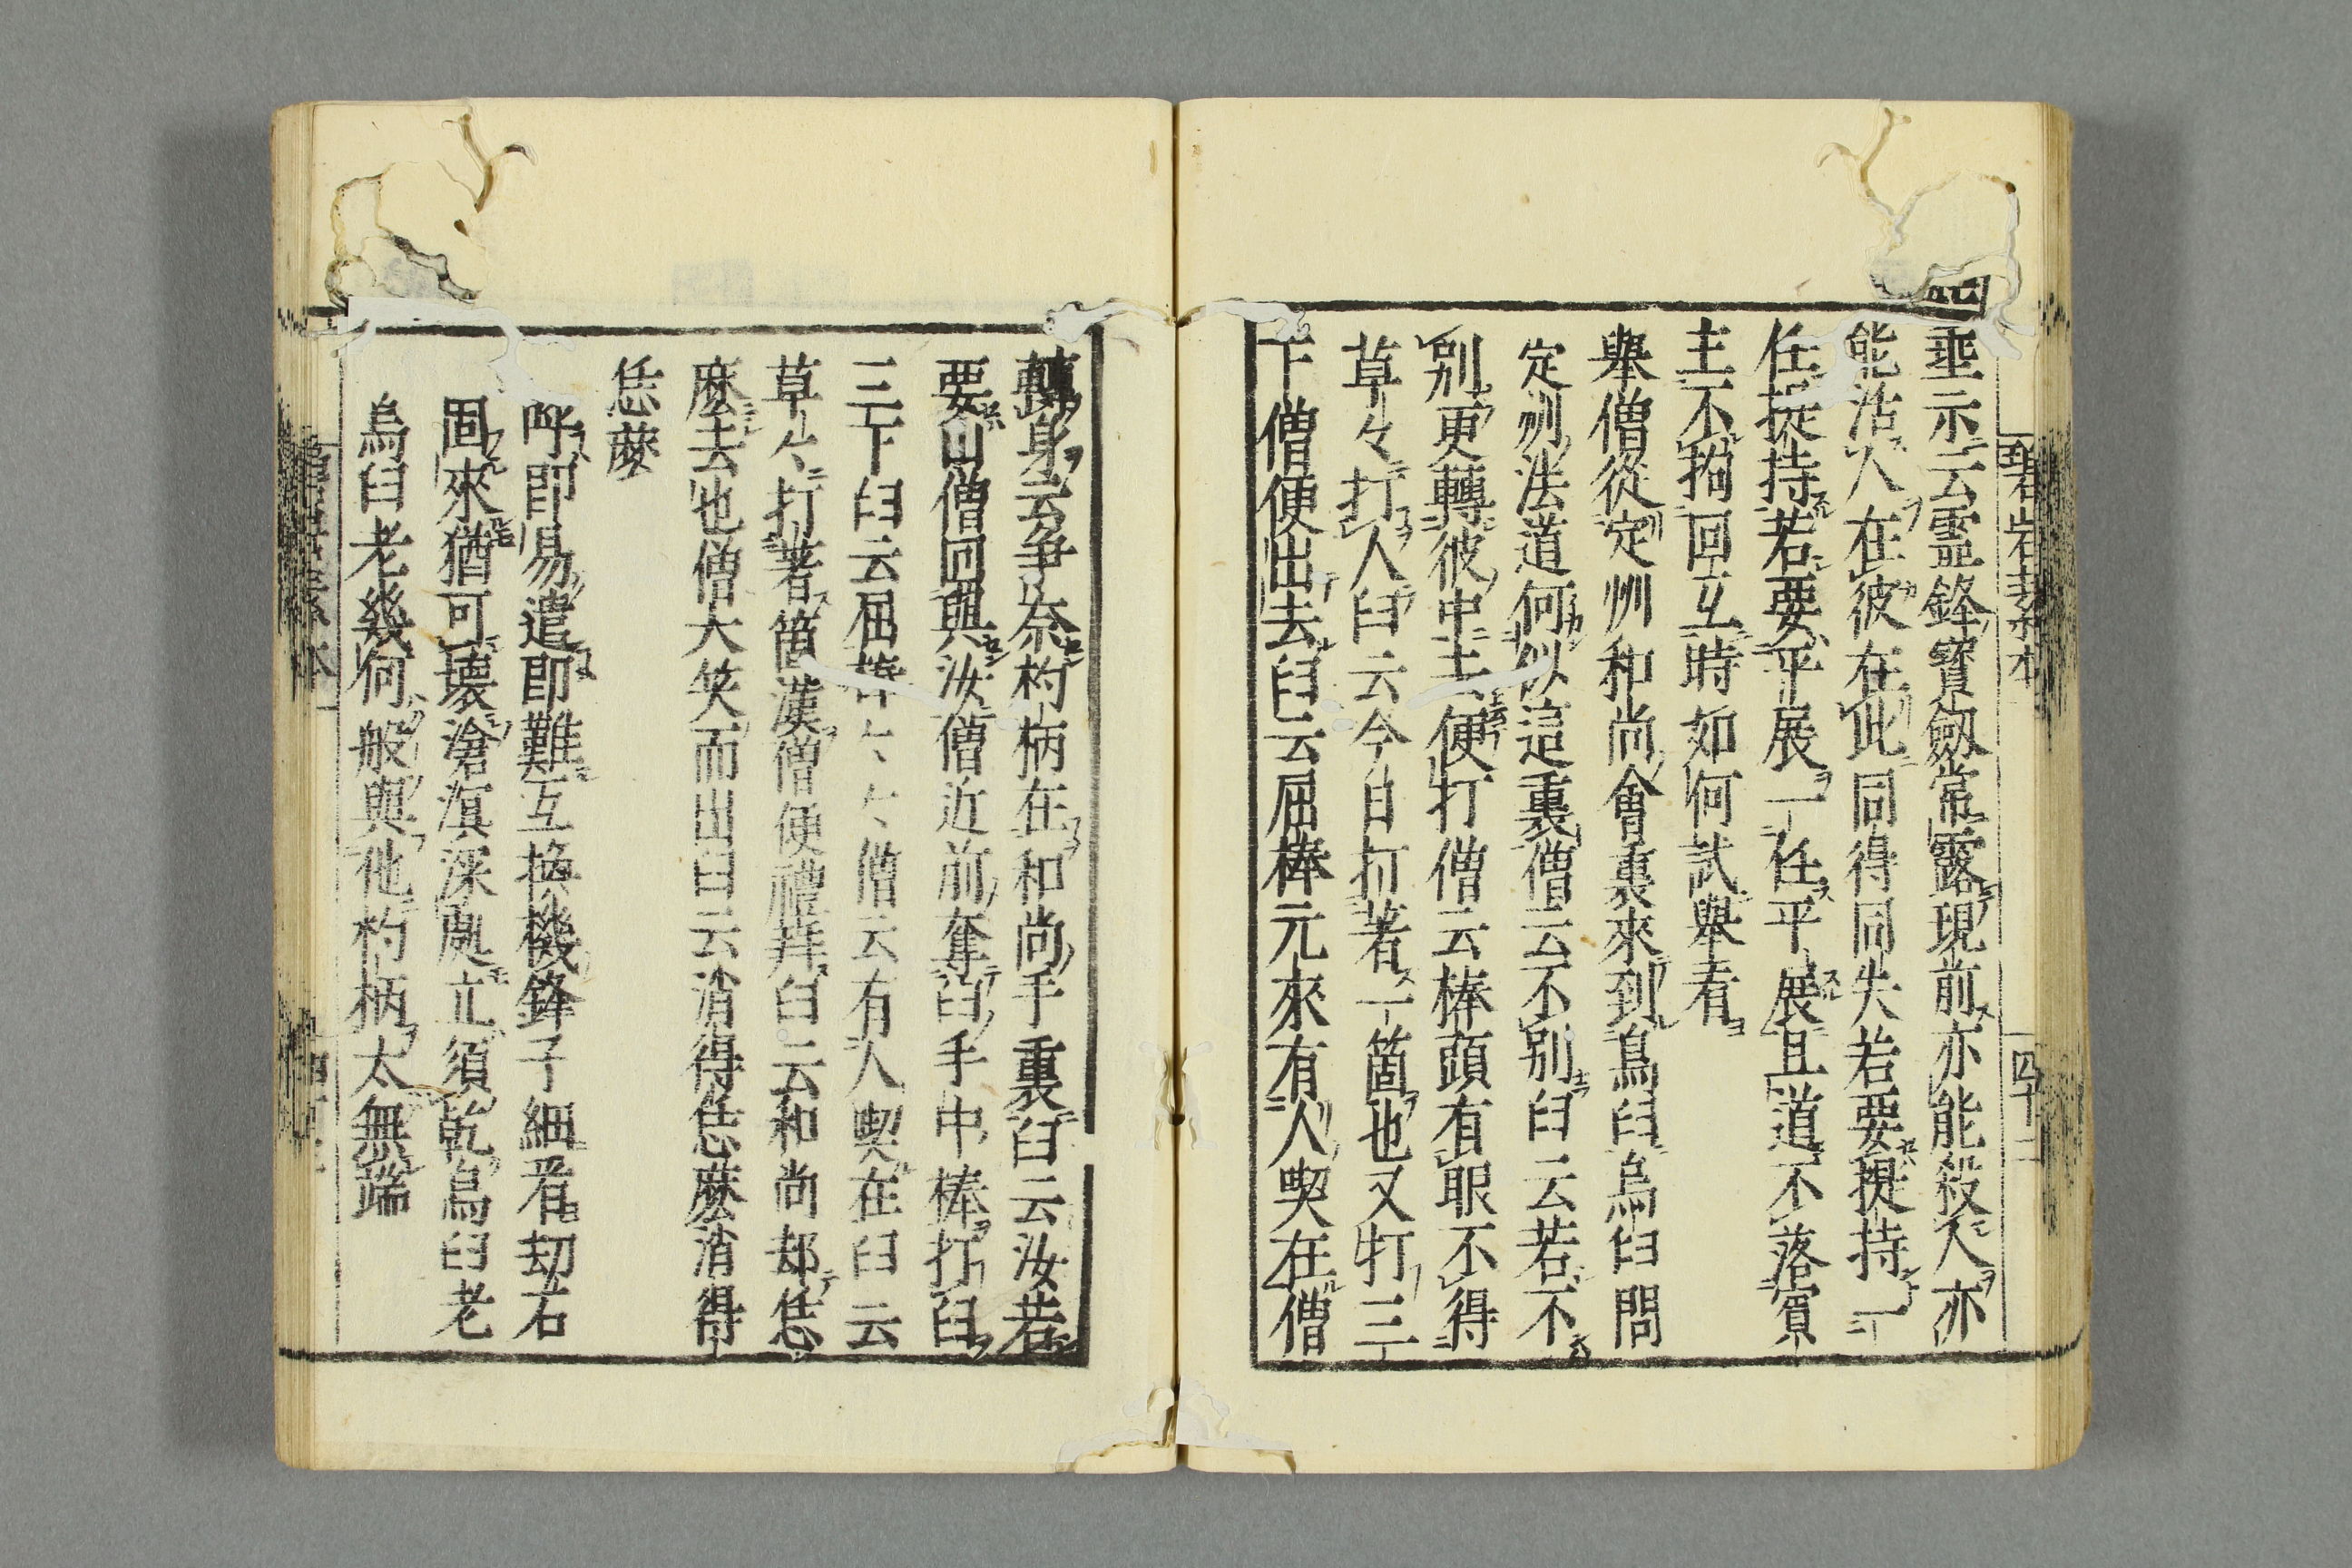 碧岩集本
四十二
垂示云靈鋒寶劔常露現前亦能殺人亦
能活人在彼在此同得同失若要提持一
任提持若要平展一任平展且道不落賓
主不拘回互時如何試舉看
舉僧從定州和尚會裏來到烏臼烏臼問
定州法道何似這裏僧云不別臼云若不
別更轉彼中去便打僧云棒頭有眼不得
草々打人臼云今日打著一箇也又打三
下僧便出去臼云屈棒元來有人喫在僧
轉身云爭奈杓柄在和尚手裏臼云汝若
要山僧回與汝僧近前奪臼手中棒打臼
三下臼云屈棒々々僧云有人喫在臼云
草々打著箇漢僧便禮拜臼云和尚却恁
麼去也僧大笑而出臼云消得恁麼消得
恁麼
呼即易遣即難互換機鋒子細看劫石
固來猶可壞滄溟深處立須乾烏臼老
烏臼老幾何般與他杓柄太無端